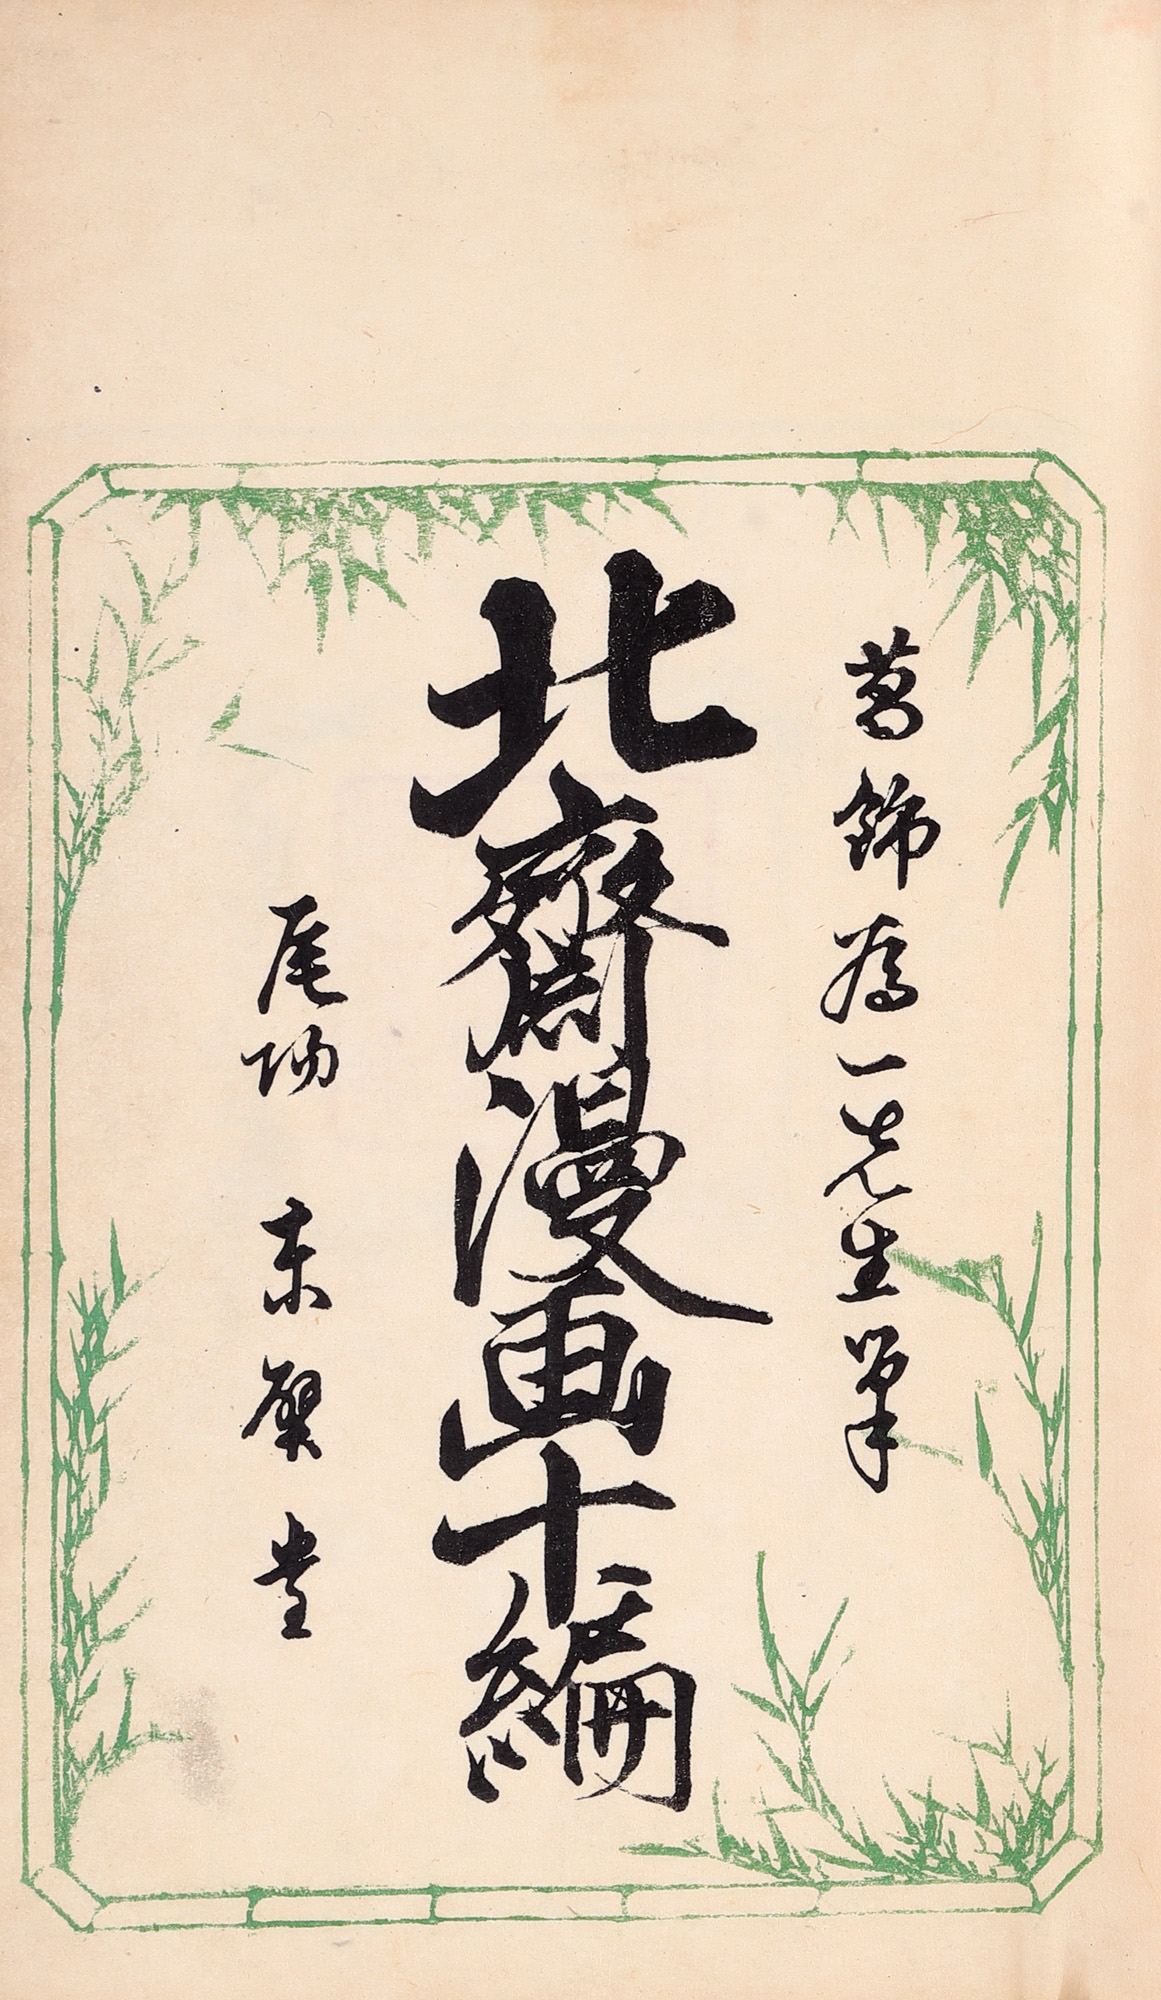 葛飾為一先生筆
北齋漫画十編
尾陽 東壁堂